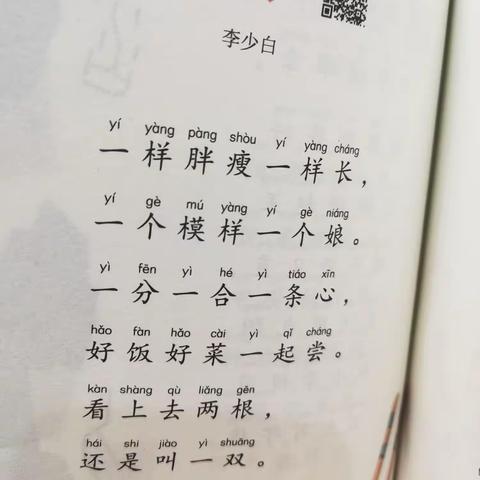 李少白
yí yàng pàng shòu yí yàng cháng
一样胖瘦一样长，
yí gè mú yàng yí gè niáng
一个模样一个娘。
yì fēn yì hé yì tiáo xīn
一分一合一条心，
hǎo fàn hǎo cài yì qǐ cháng
好饭好菜一起尝。
kàn shàng qù liǎng gēn
看上去两根，
hái shi jiào yì shuāng
还是叫一双。